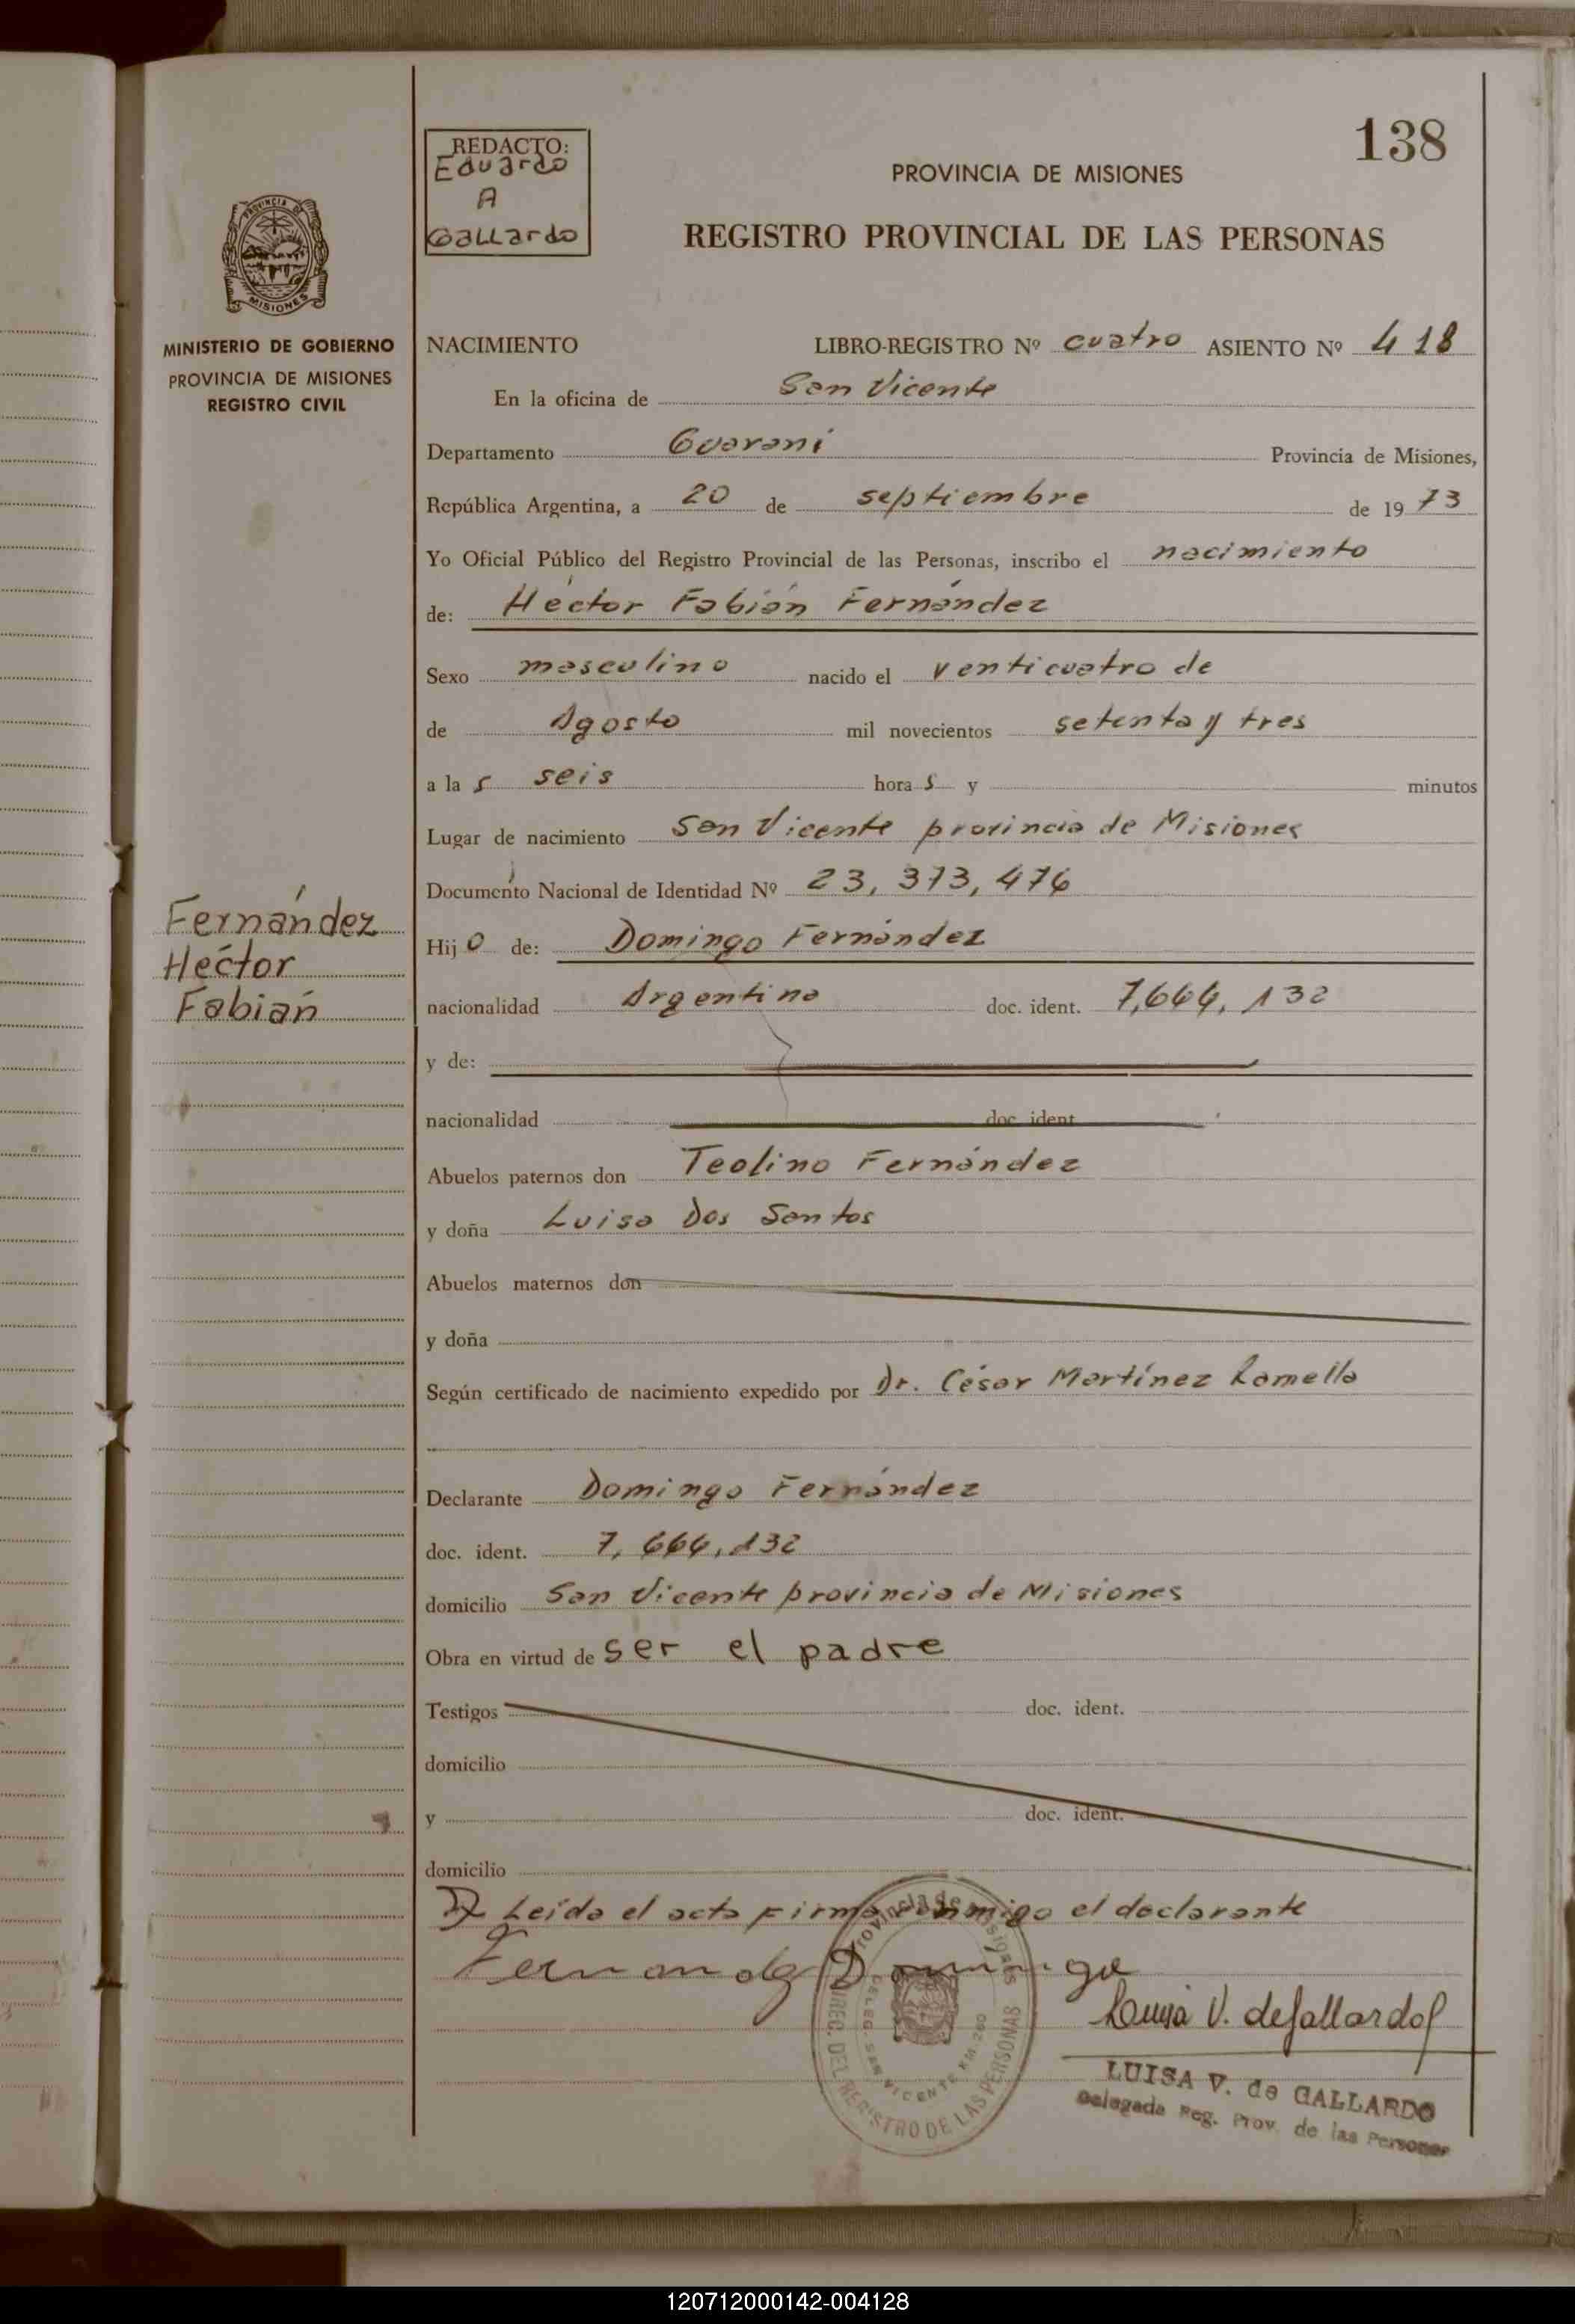 138
REDACTO:
Eduardo
A
Gallardo
PROVINCIA DE MISIONES
REGISTRO PROVINCIAL DE LAS PERSONAS
PROVINCIA DE
MISIONES
MINISTERIO DE GOBIERNO
PROVINCIA DE MISIONES
REGISTRO CIVIL
NACIMIENTO LIBRO-REGISTRO Nº cuatro ASIENTO Nº 418
En la oficina de San Vicente
Departamento Guarani Provincia de Misiones,
República Argentina, a 20 de septiembre de 1973
Yo Oficial Público del Registro Provincial de las Personas, inscribo el nacimiento
de: Héctor Fabián Fernández
Sexo masculino nacido el venticuatro de
de Agosto mil novecientos setenta y tres
a las seis horas y minutos
Lugar de nacimiento San Vicente provincia de Misiones
Documento Nacional de Identidad Nº 23,373,476
Fernández
Héctor
Fabián
Hijo de: Domingo Fernández
nacionalidad Argentina doc. ident. 7,664,132
y de:
nacionalidad doc. ident
Abuelos paternos don Teolino Fernández
y doña Luisa Dos Santos
Abuelos maternos don
y doña
Según certificado de nacimiento expedido por Dr. César Martínez Ramella
Declarante Domingo Fernández
doc. ident. 7,664,132
domicilio San Vicente provincia de Misiones
Obra en virtud de ser el padre
Testigos doc. ident.
domicilio
y doc. ident.
domicilio
Leída el acta firma conmigo el declarante
Fernandez Domingo
Provincia de Misiones
DIREC. DEL REGISTRO DE LAS PERSONAS
DELEG. SAN VICENTE KM. 260
Luisa V. de Gallardo
LUISA V. de GALLARDO
Delegada Reg. Prov. de las Personas
120712000142-004128